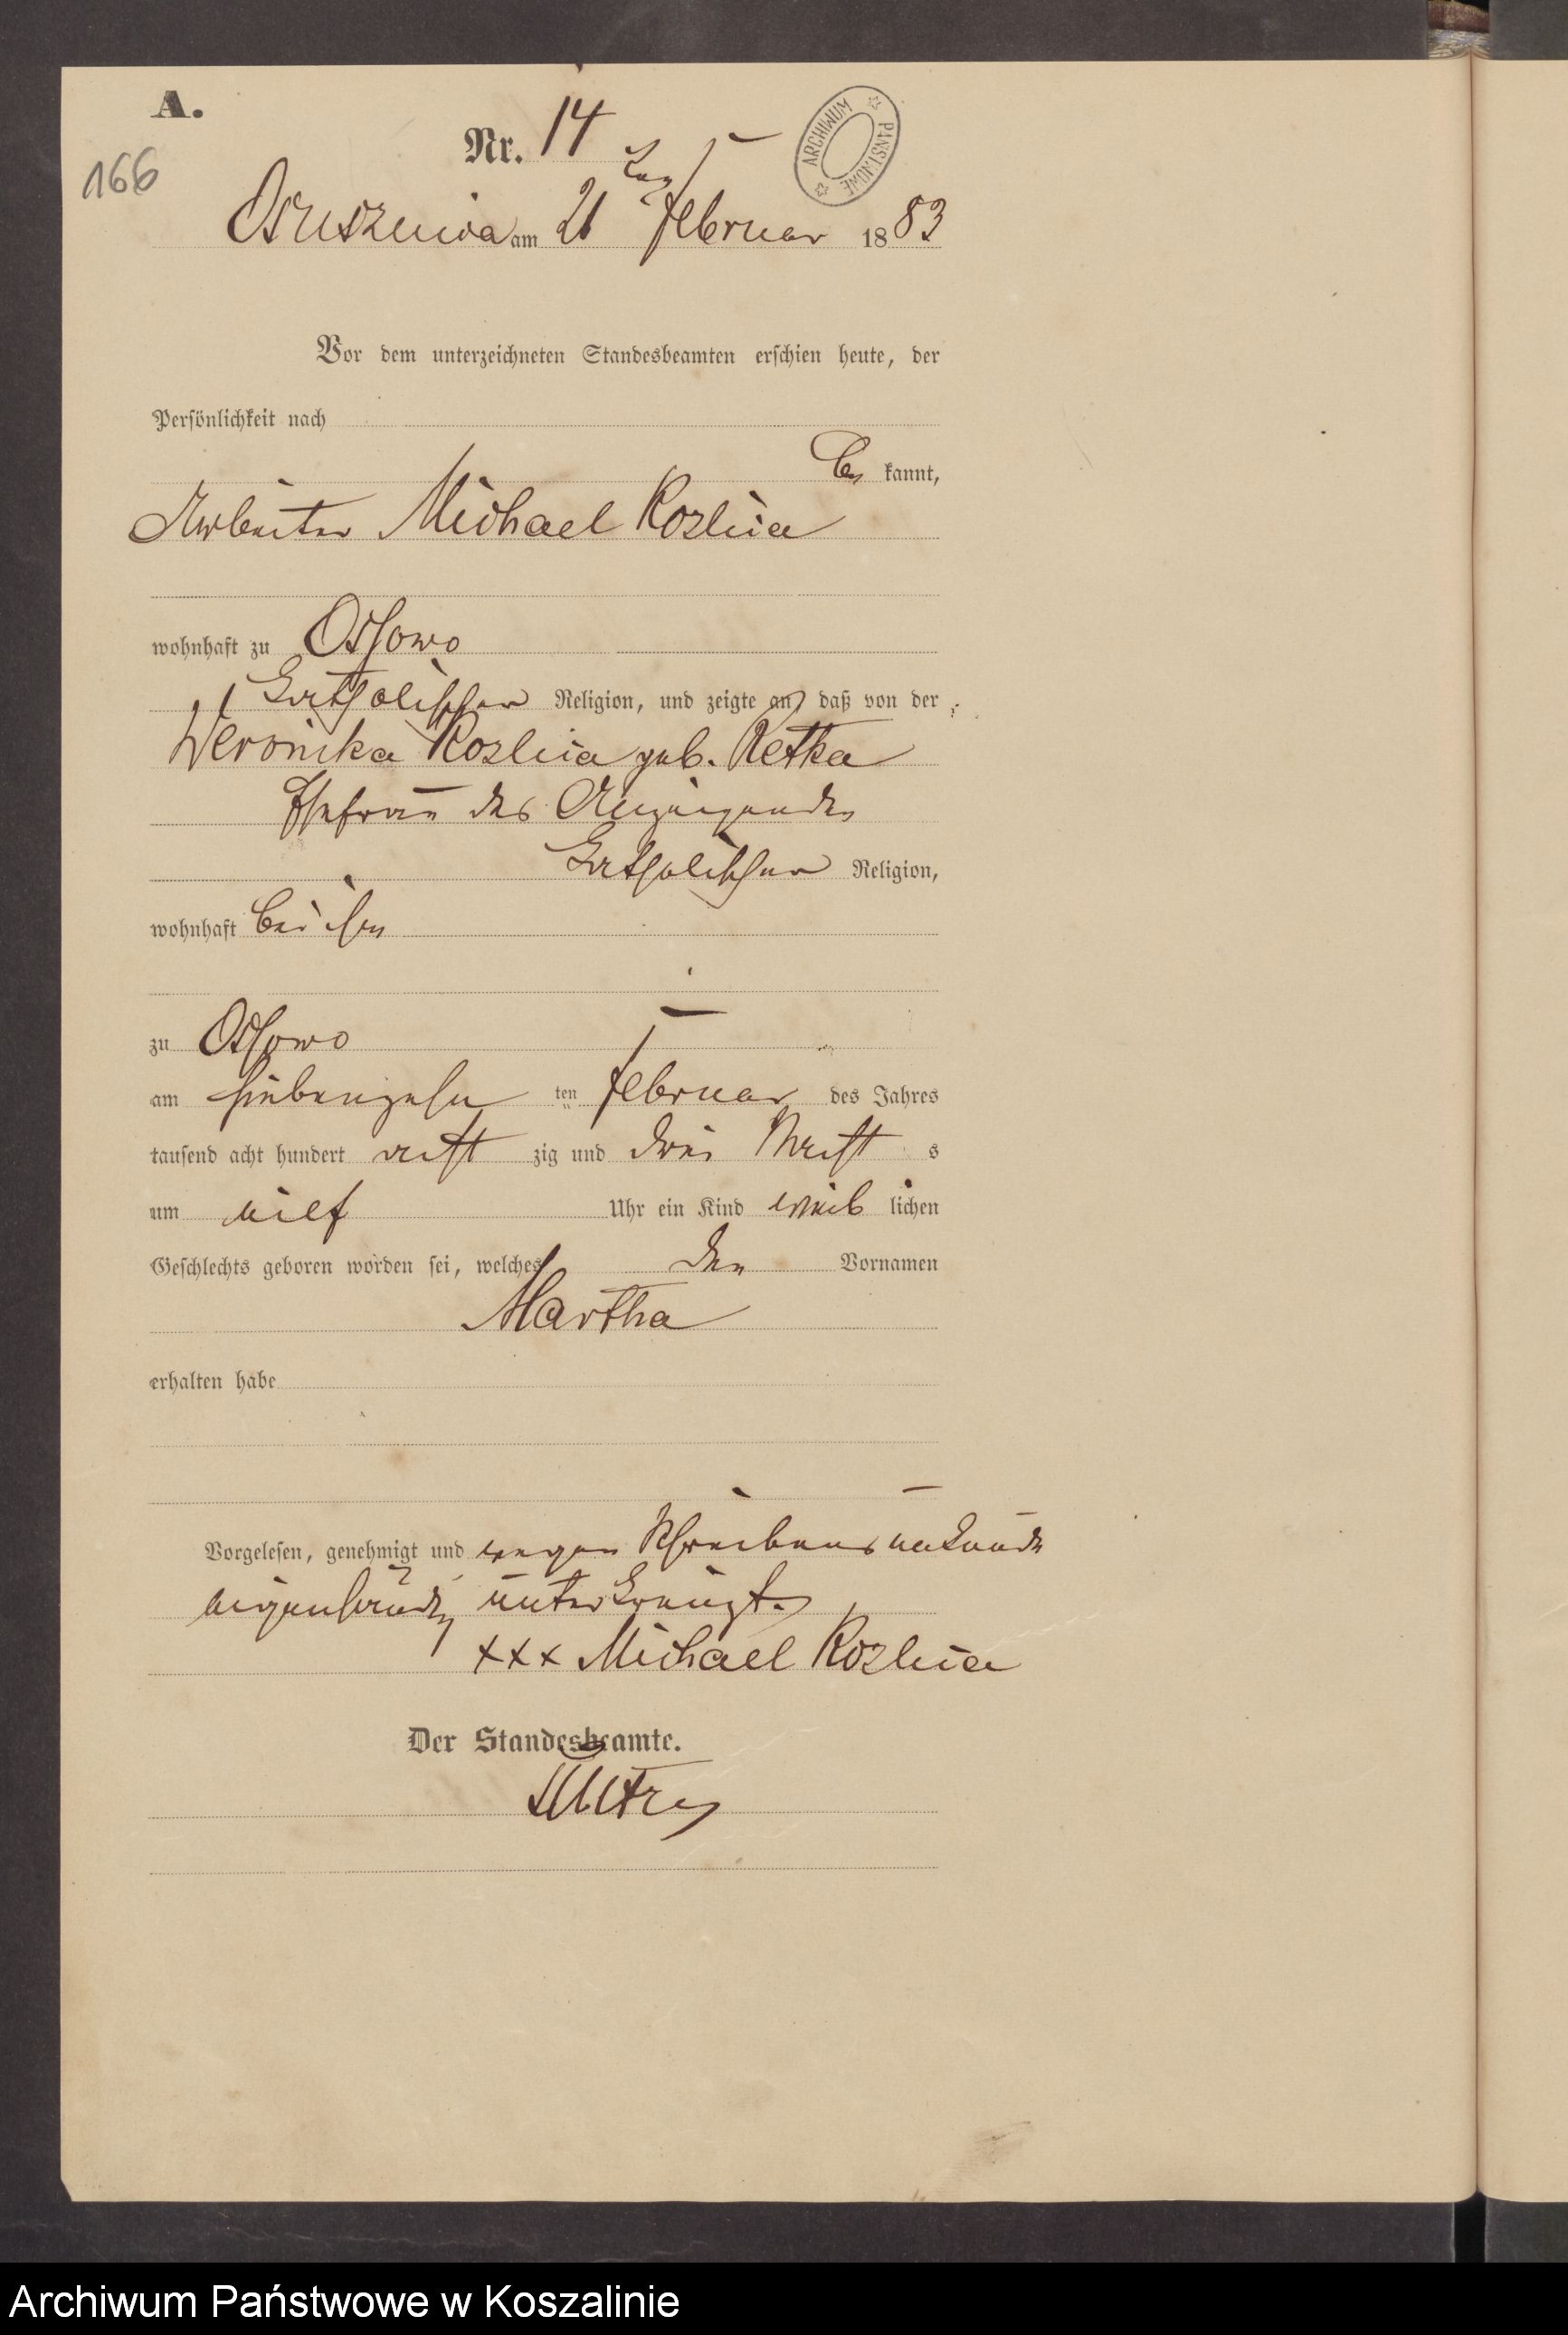 A.
Nr. 14
166
ARCHIWUM PAŃSTWOWE
Osusznica am 21 ten Februar 1883
Vor dem unterzeichneten Standesbeamten erschien heute, der
Persönlichkeit nach
be kannt,
Arbeiter Michael Kozlica
wohnhaft zu Ossowo
katholischer Religion, und zeigte an, daß von der
Weronika Kozlica geb. Retka
Ehefrau des Anzeigenden
katholischer Religion,
wohnhaft bei ihm
zu Ossowo
am siebenzehn ten Februar des Jahres
tausend acht hundert acht zig und drei Nacht s
um eilf Uhr ein Kind weib lichen
Geschlechts geboren worden sei, welches den Vornamen
Martha
erhalten habe
Vorgelesen, genehmigt und wegen Schreibensunkunde
eigenhändig unterkreuzt.
xxx Michael Kozlica
Der Standesbeamte.
Archiwum Państwowe w Koszalinie